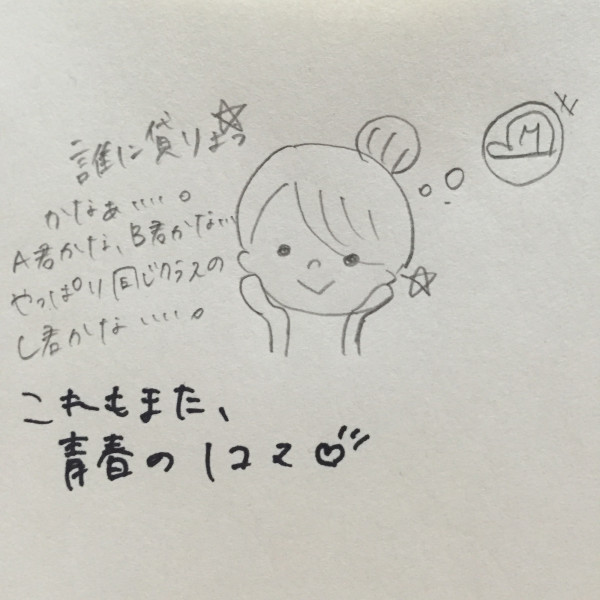 誰に貸りよっ
かなぁ....。
A君かな、B君かな...
やっぱり同じクラスの
C君かな....。
M
これもまた、
青春の1コマ♡